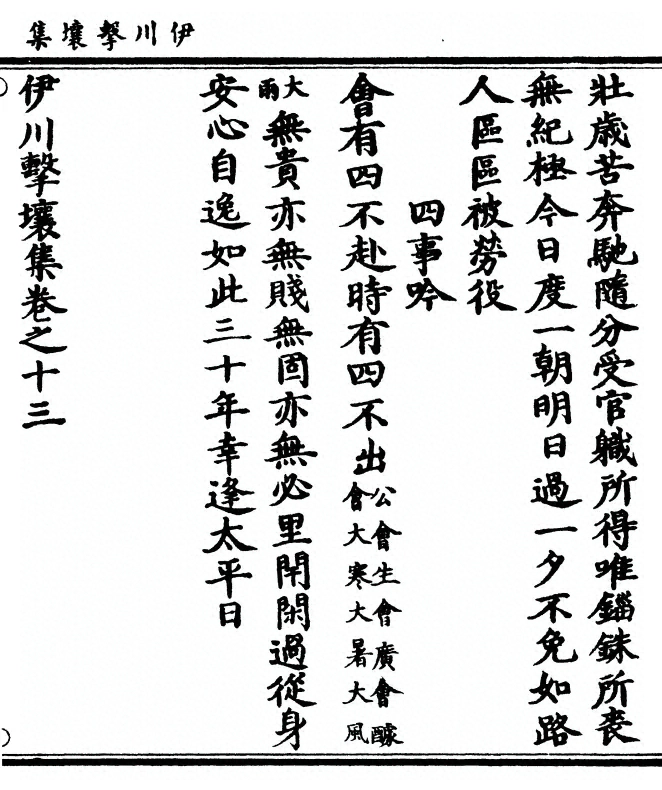 伊川擊壤集
壯歲苦奔馳隨分受官軄所得唯錙銖所喪
無紀極今日度一朝明日過一夕不免如路
人區區被勞役
四事吟
會有四不赴時有四不出公會生會廣會醵
會大寒大暑大風
大雨無貴亦無賤無固亦無必里閈閑過從身
安心自逸如此三十年幸逢太平日
伊川擊壤集卷之十三